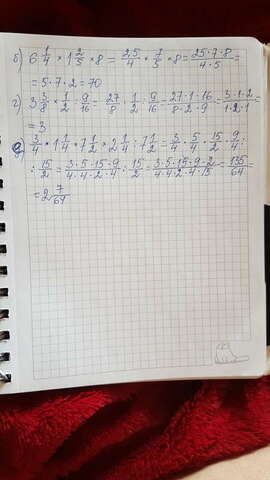 б) 6 1/4 × 1 2/5 × 8 = 25/4 × 7/5 × 8 = 25·7·8/4·5 =
= 5·7·2 = 70
г) 3 3/8 × 1/2 : 9/16 = 27/8 · 1/2 : 9/16 = 27·1·16/8·2·9 = 3·1·2/1·2·1 =
= 3
д) 3/4 × 1 1/4 × 7 1/2 × 2 1/4 : 7 1/2 = 3/4 · 5/4 · 15/2 · 9/4 :
: 15/2 = 3·5·15·9/4·4·2·4 : 15/2 = 3·5·15·9·2/4·4·2·4·15 = 135/64 =
= 2 7/64